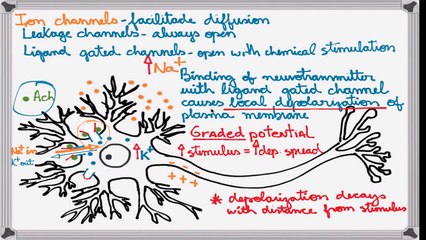 Iron channels - facilitade diffusion
Leakage channels - always open
Ligand gated channels - open with chemical stimulation
↑Na+
Binding of neurotransmitter
with ligand gated channel
causes local depolarization of
plasma membrane
Ach
Graded potential
↑stimulus = ↑dep. spread
Na+ in
K+ out
↑K+
* depolarization decays
with distance from stimulus